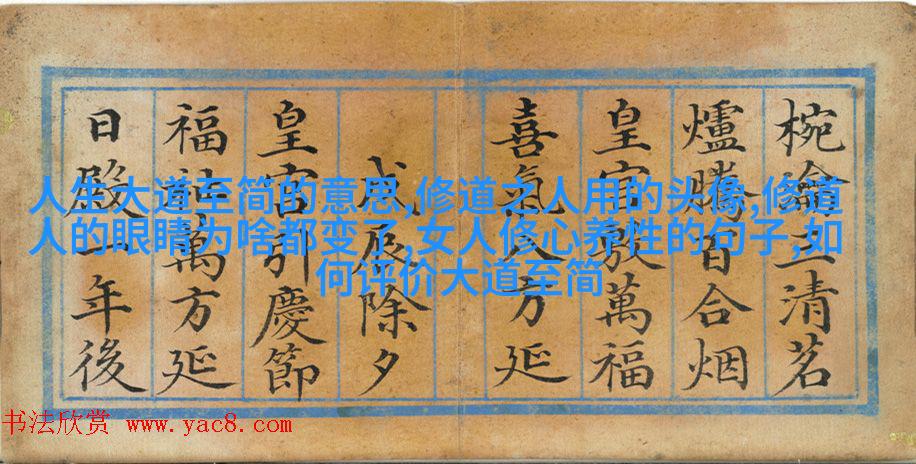 椀瀹三清茗
爐騰百合烟
皇宫敷萬福
喜氣八方延
戊辰除夕
皇宫引慶節
福祉萬方延
日殿一年後
人生大道至简的意思,修道之人用的头像,修道
人的眼睛为啥都变了,女人修心养性的句子,如
何评价大道至简
书法欣赏 www.yac8.com